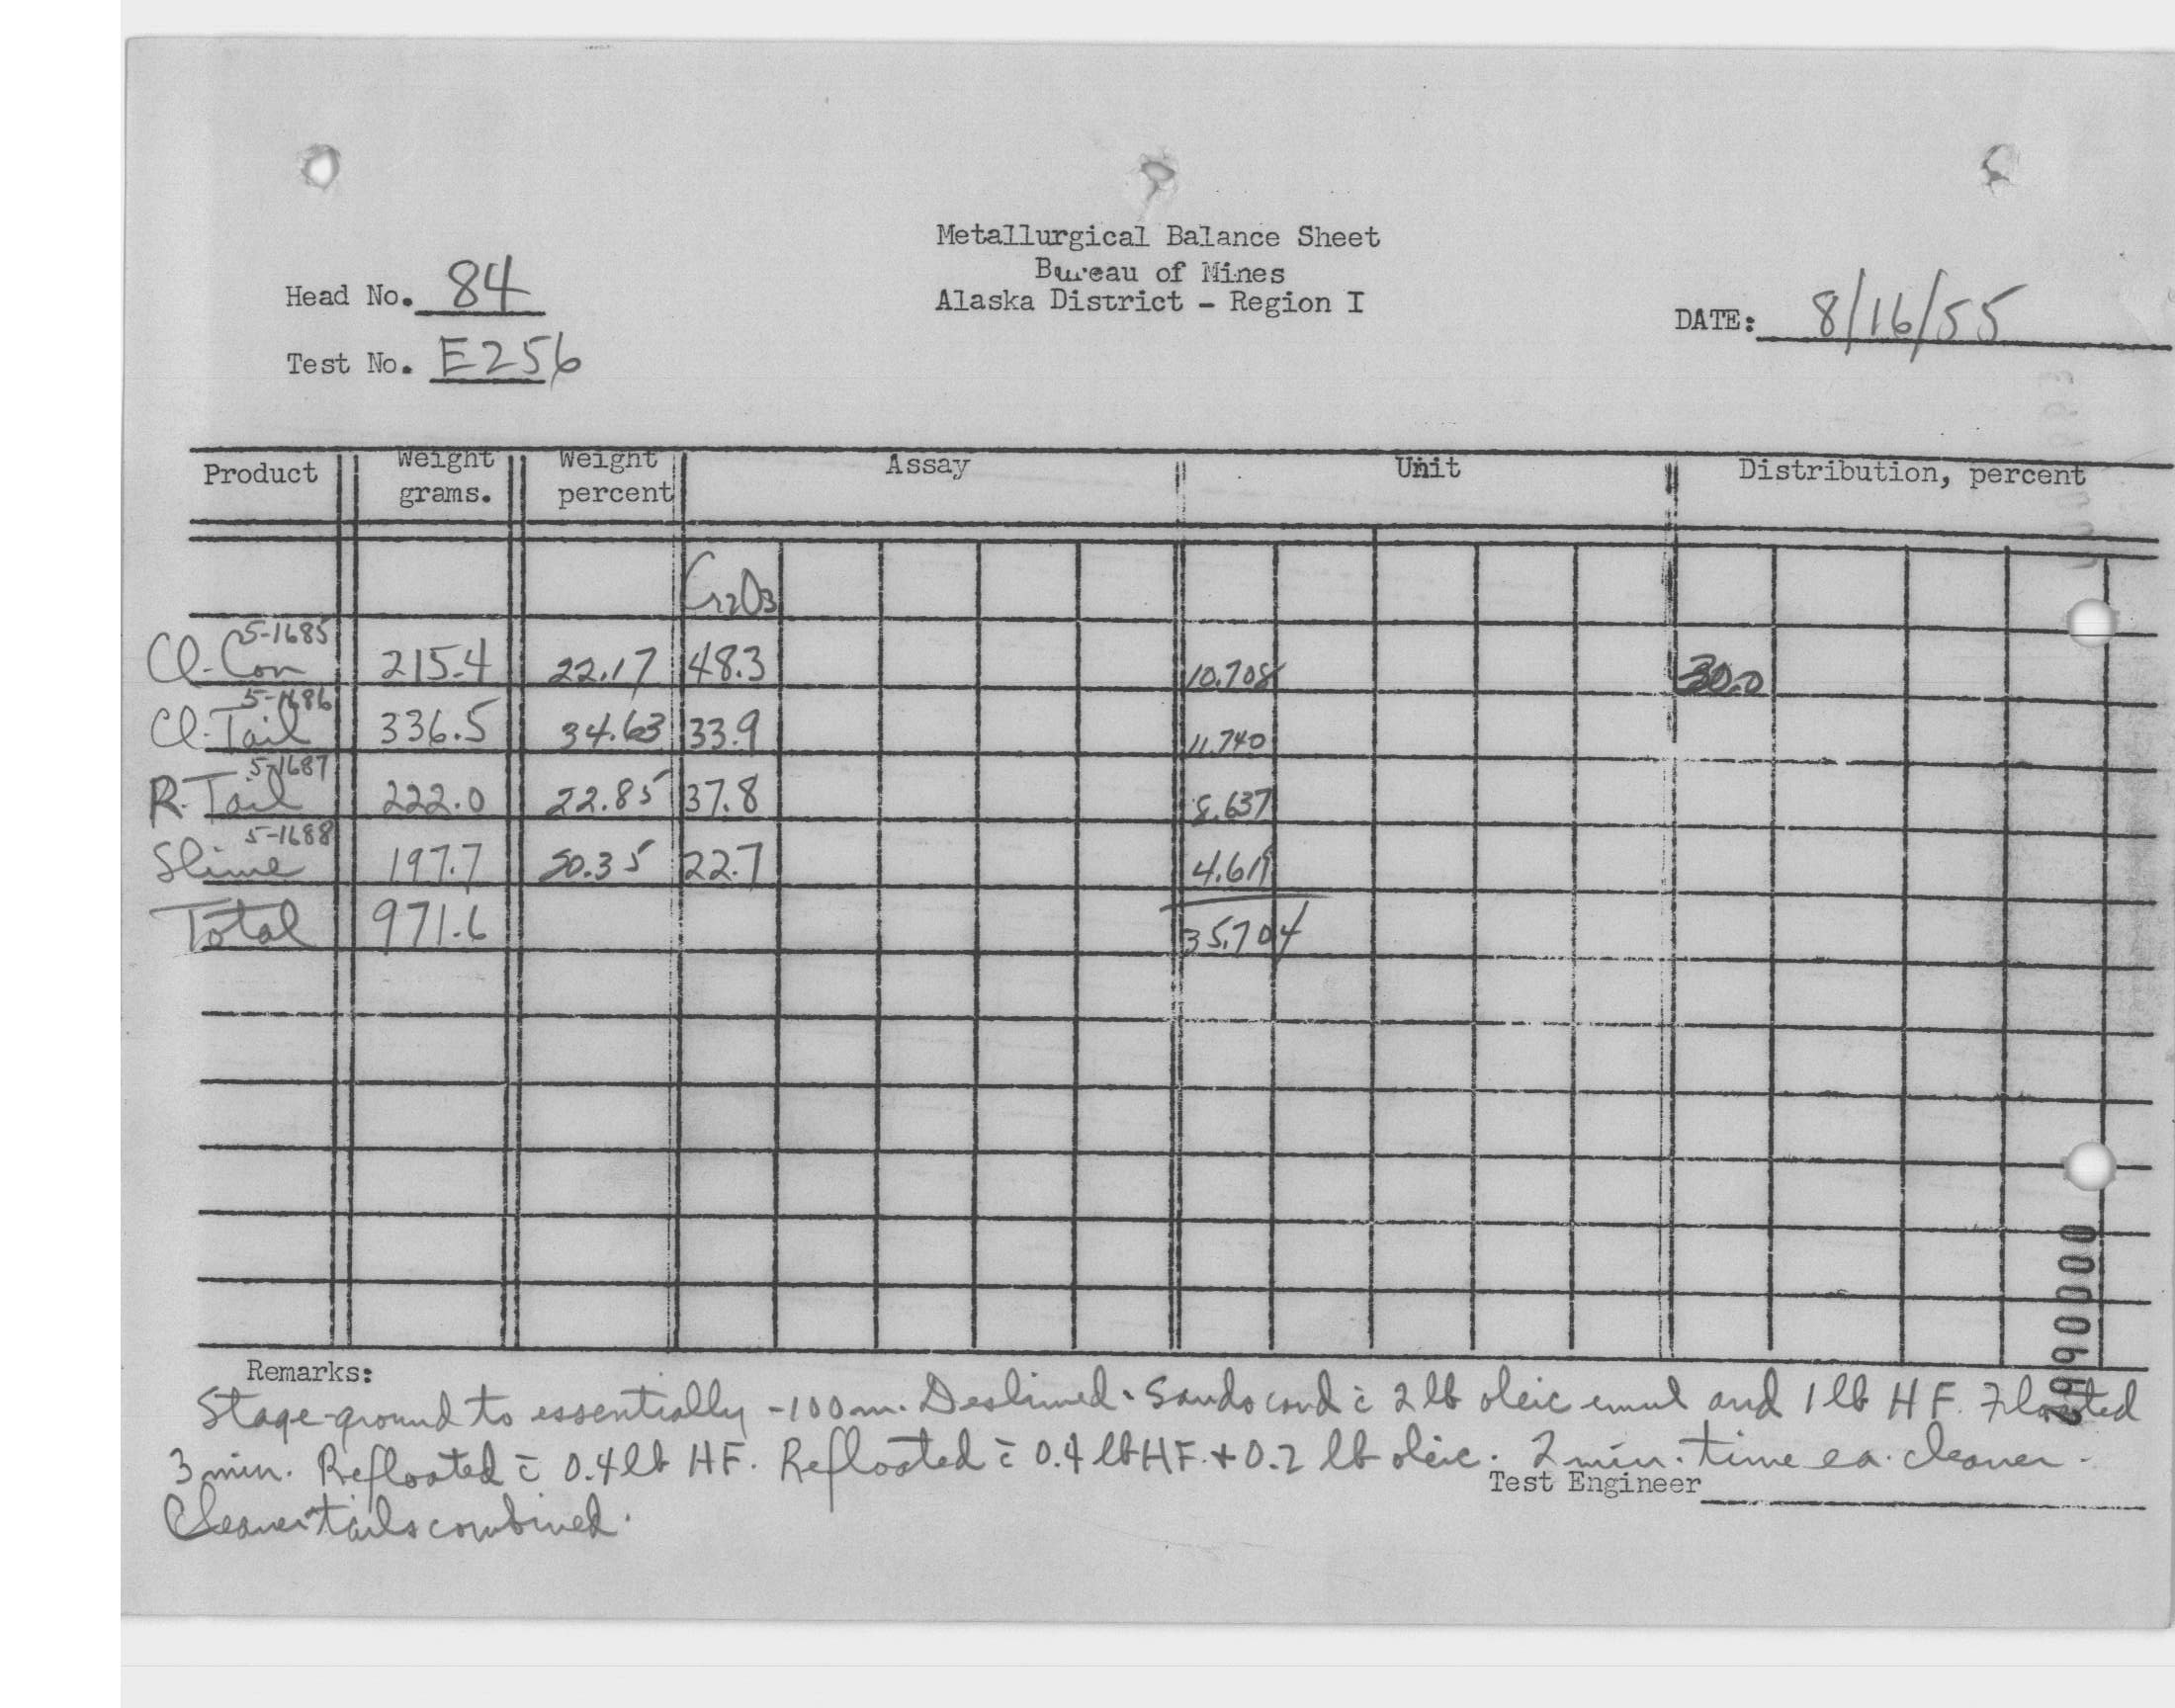 Metallurgical Balance Sheet
Bureau of Mines
Alaska District - Region I
Head No. 84
Test No. E256
DATE: 8/16/55
Product Weight grams. Weight percent Assay Unit Distribution, percent
Cr2O3
5-1685
Cl. Con 215.4 22.17 48.3 10.708 30.0
5-1686
Cl. Tail 336.5 34.63 33.9 11.740
5-1687
R. Tail 222.0 22.85 37.8 8.637
5-1688
Slime 197.7 20.35 22.7 4.619
Total 971.6 35.704
Remarks:
Stage-ground to essentially -100m. Deslimed. Sands cond c̄ 2 lb oleic emul and 1 lb HF. Floated
3 min. Refloated c̄ 0.4 lb HF. Refloated c̄ 0.4 lb HF. + 0.2 lb oleic. 2 min. time ea. cleaner.
Test Engineer
Cleaner tails combined.